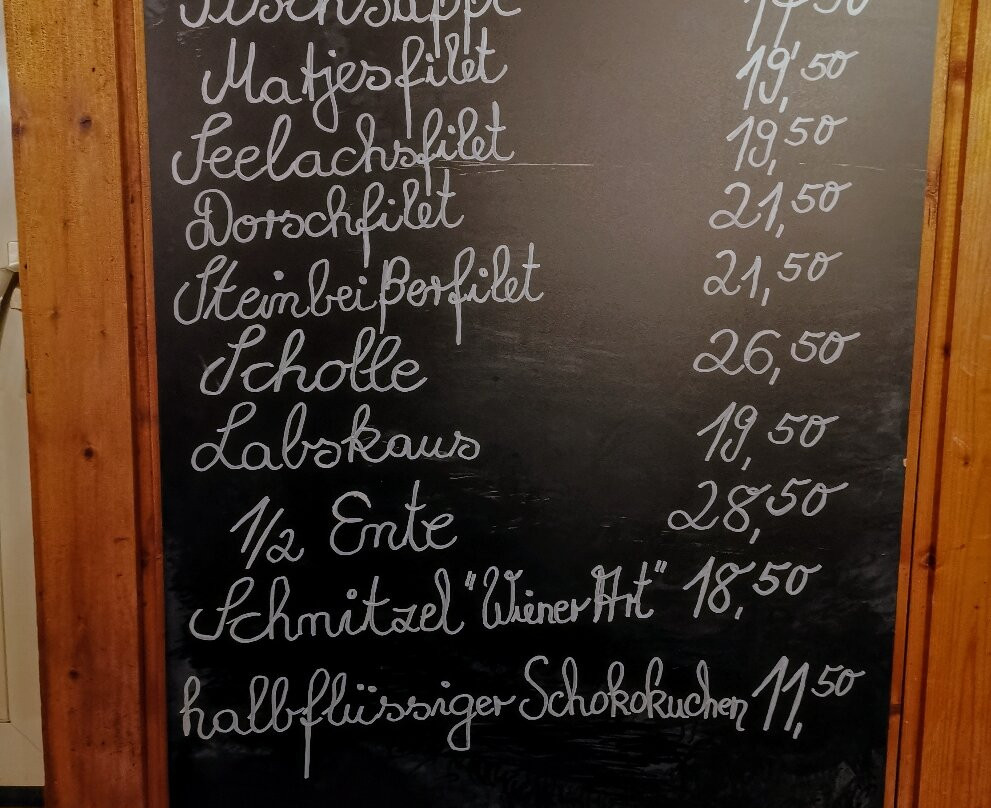 Matjesfilet 19,50
Seelachsfilet 19,50
Dorschfilet 21,50
Steinbeißerfilet 21,50
Scholle 26,50
Labskaus 19,50
1/2 Ente 28,50
Schnitzel "Wiener Art" 18,50
halbflüssiger Schokokuchen 11,50